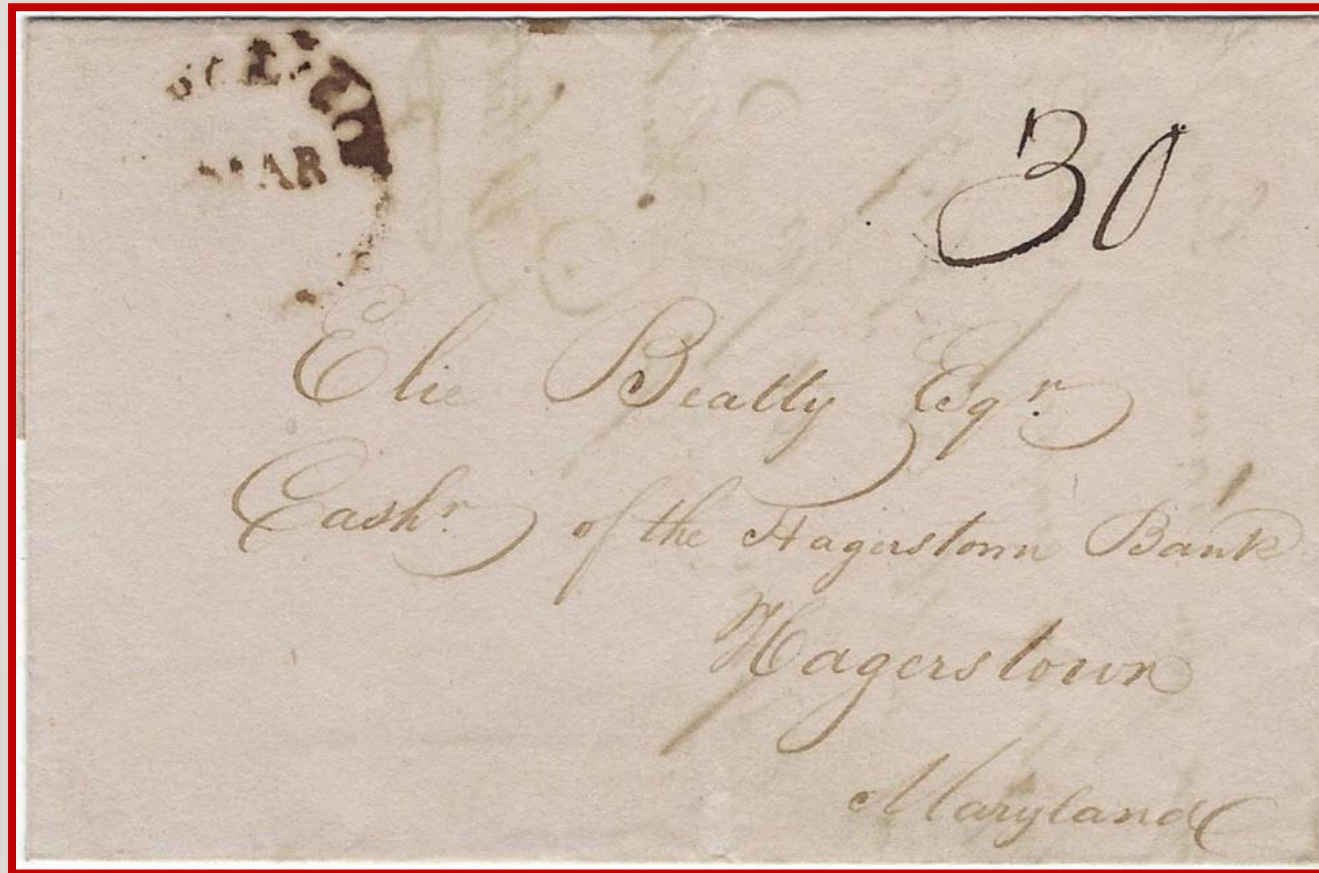 MAR
30
Elie Beatty Esqr.
Cashr. of the Hagerstown Bank
Hagerstown
Maryland